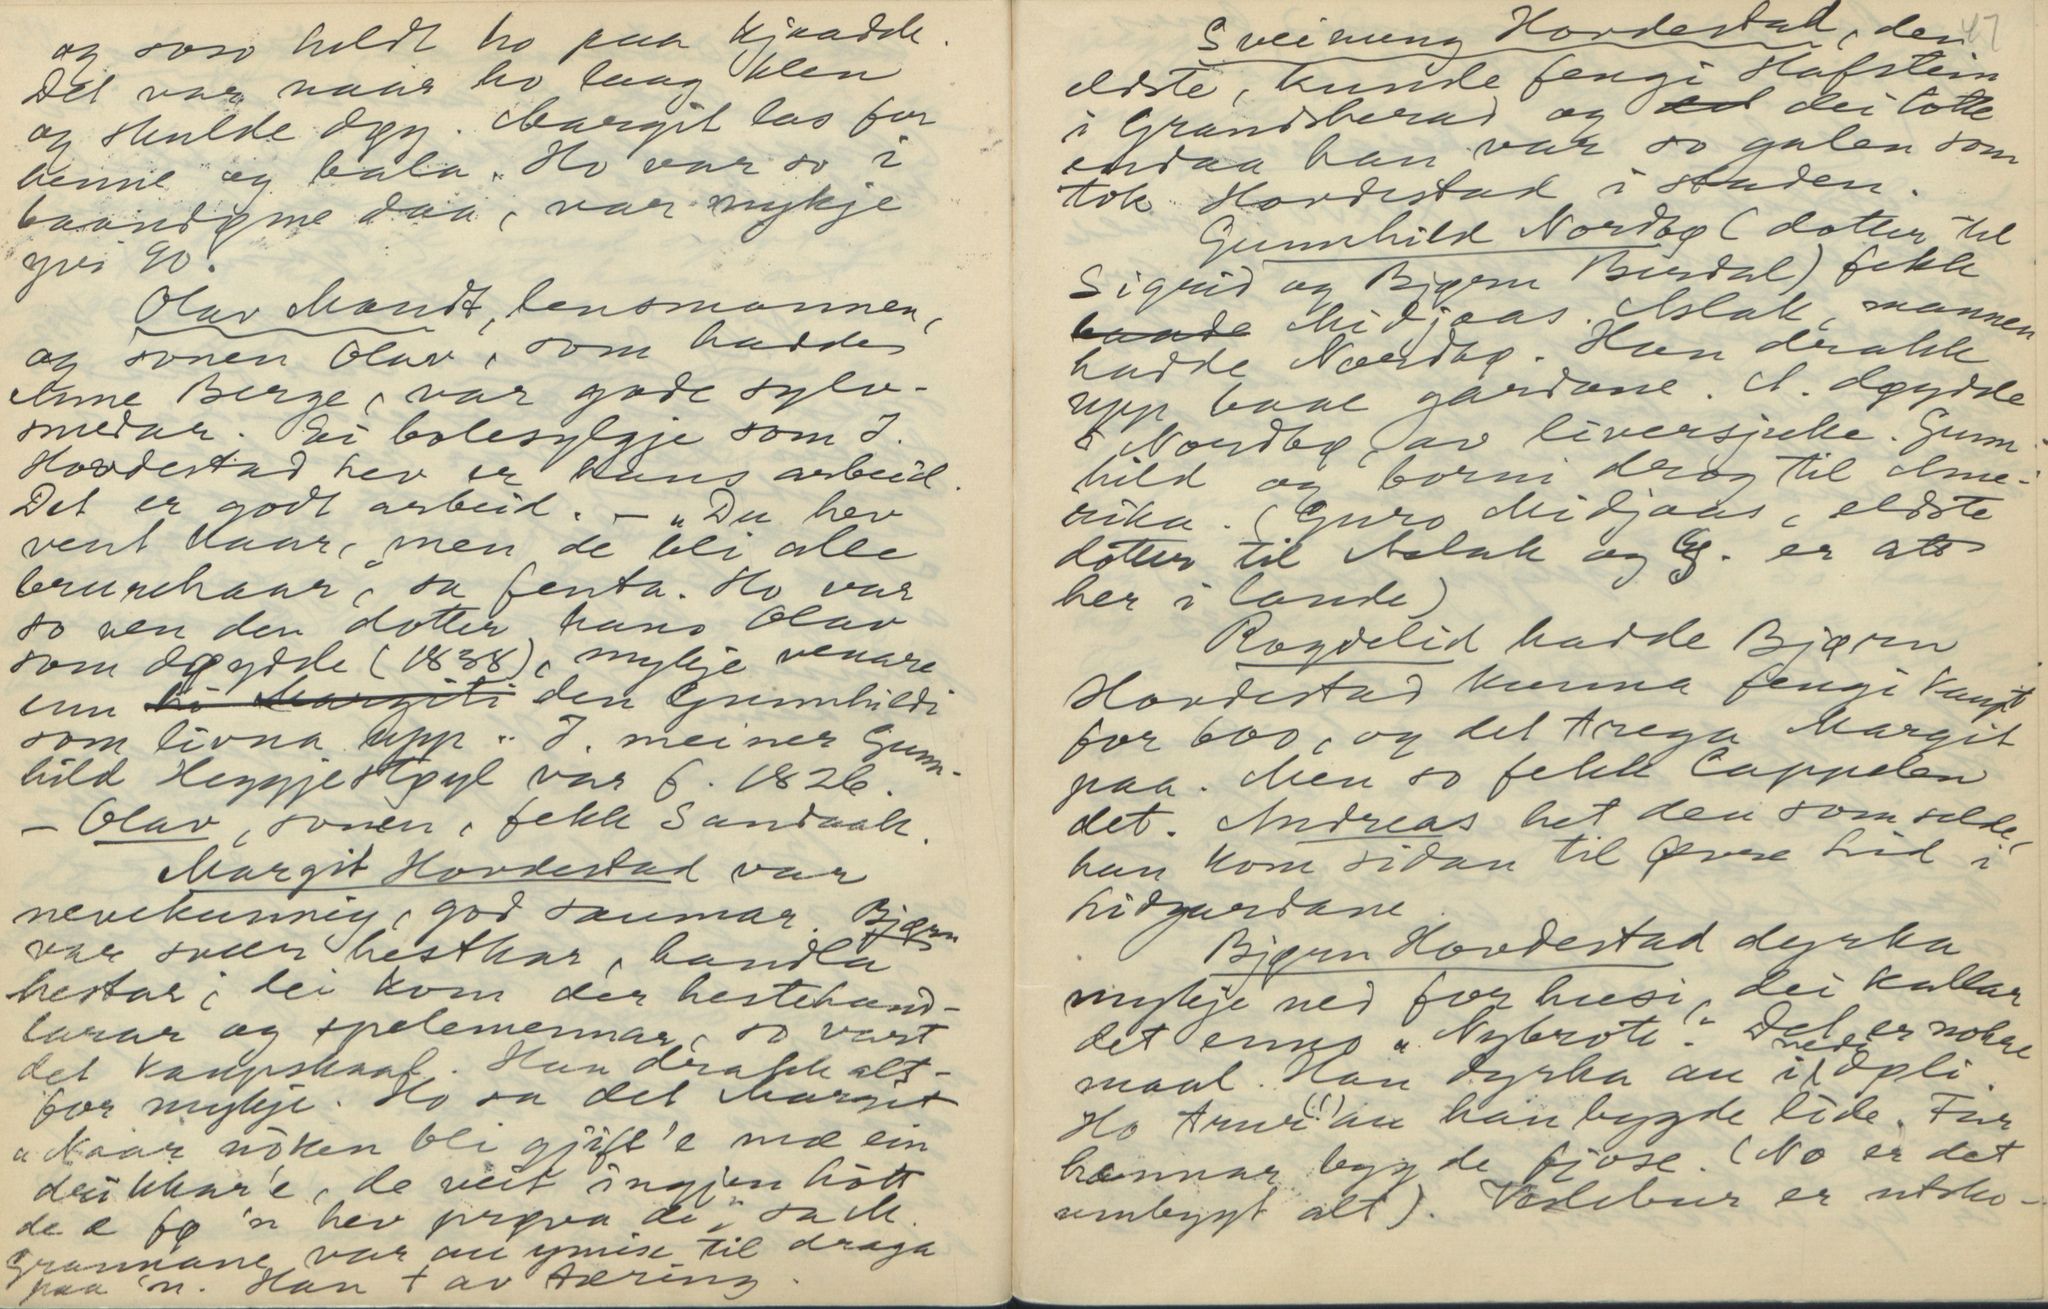 og soso heldt ho paa kjaadde.
Det var naar ho laag klen
og skulde døy. Margit las for
henne og bala. Ho var so i
baandøme daa, var mykje
yvi 90.
Olav Mandt, lensmannen,
og sonen Olav, som hadde
Anne Berge, var gode sylv-
smedar. Ei bolesylgje som J.
Hovdestad hev er hans arbeid.
Det er godt arbeid. – „Du hev
vent haar, men de bli alle
brurehaar," sa fenta. Ho var
so ven den dotter hans Olav
som døydde (1838), mykje venare
enn ho Margiti den Gunnhildi
som livna upp". J. meiner Gunn-
hild Heggjestøyl var f. 1826.
– Olav, sonen, fekk Sandaak.
Margit Hovdestad var
nevekunnig, god saumar. Bjørn
var svær hestkar, handla
hestar; dei kom der hestehand-
larar og spelemennar, so vart
det kaupskaal. Han drakk alt-
for mykje. Ho sa det Margit
„Naar nöken bli gjift'e mæ ein
drikkar'e, de veit ingjen hött
de æ fø 'n hev prøva de," sa M.
Grannane var au ymise til draga
paa 'n. Han + av tæring.
47
Sveinung Hovdestad, den
eldste, kunde fengi Hafstein
i Gransherad og dei totte
endaa han var so galen som
tok Hovdestad i staden.
Gunnhild Nordbø (dotter til
Sigrid og Bjørn Birdal) fekk
baade Midjaas. Aslak, mannen
hadde Nordbø. Han drakk
upp baae gardane. A. døydde
i Nordbø, av liversjuke. Gunn-
hild og borni drog til Ame-
rika. (Guro Midjaas, eldste
dotter til Aslak og G. er att
her i lande)
Roydelid hadde Bjørn
Hovdestad kunna fengi kaupt
for 600, og det trega Margit
paa. Men so fekk Cappelen
det. Andreas het den som selde,
han kom sidan til Øvre Lid i
Lidgardane.
Bjørn Hovdestad dyrka
mykje ned for husi, dei kallar
det enno „Nybrote". Det er nokre
maal. Han dyrka au i nedi Øpli.
Ho Anur (!) au han bygde lide. Fir
hænnar bygde fjose. (No er det
umbygt alt). Vedebur er utsko-